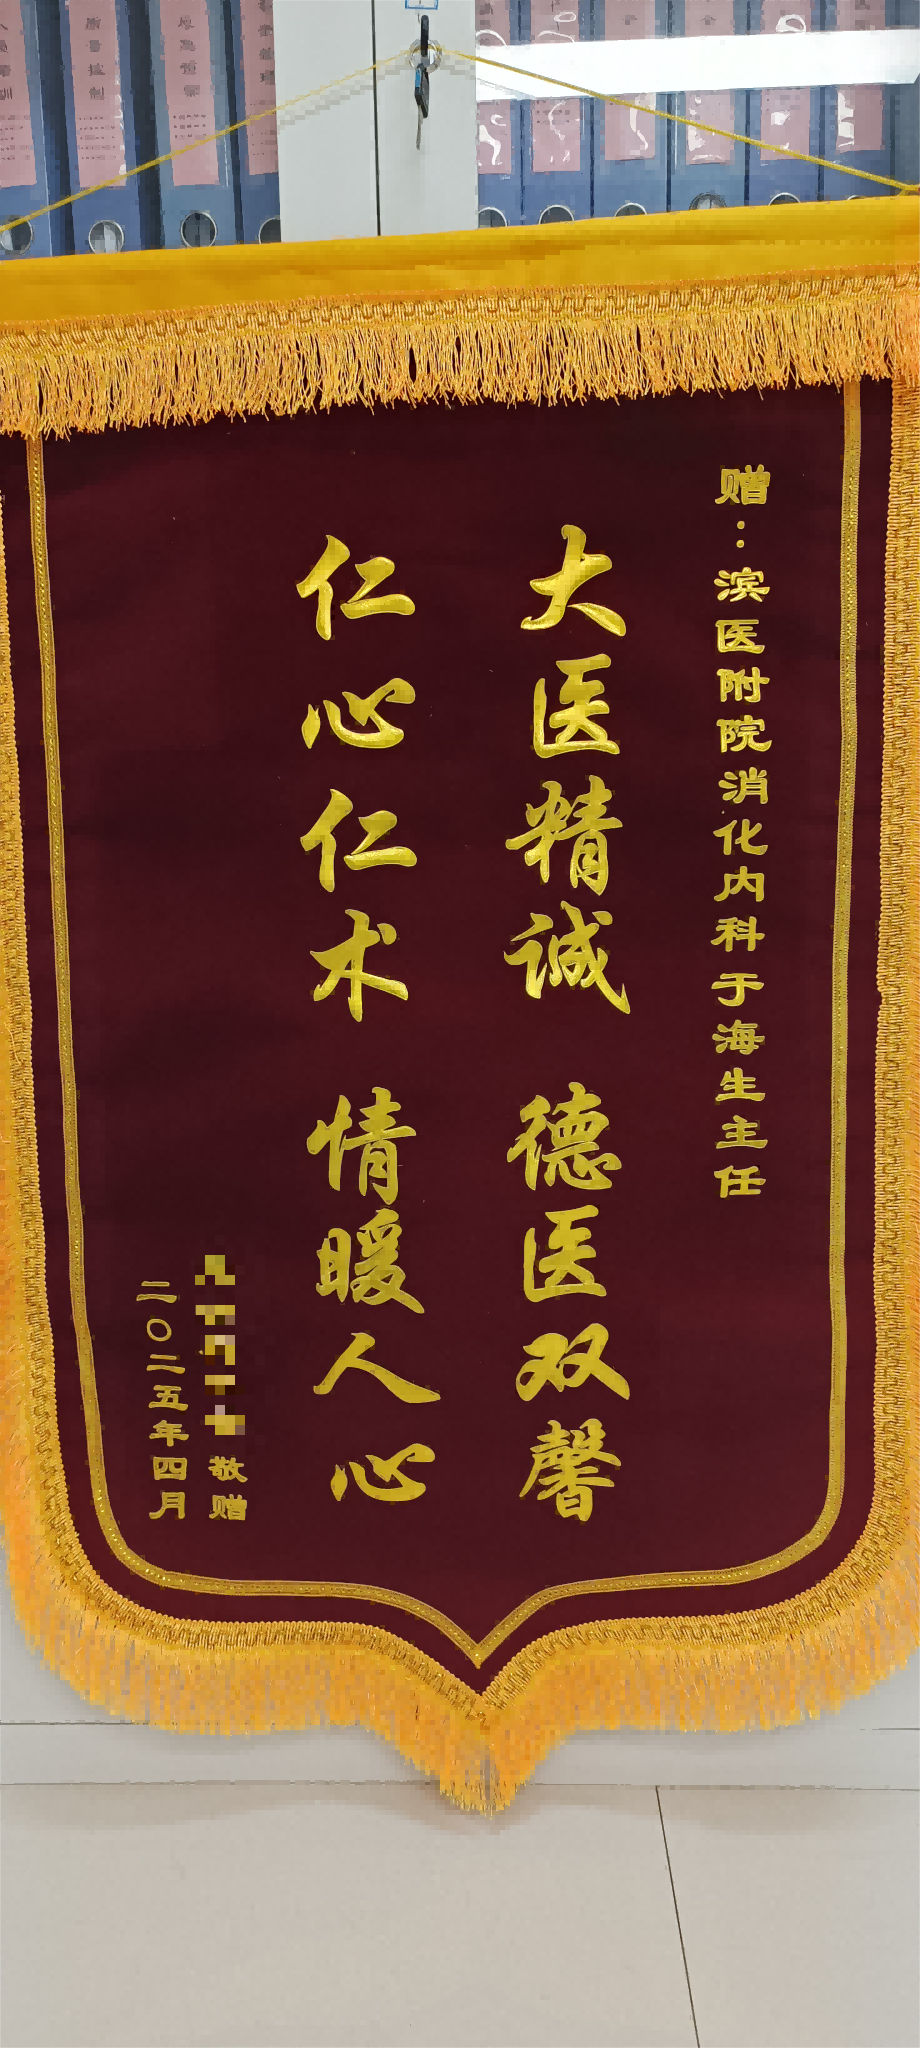 赠：滨医附院消化内科于海生主任
大医精诚 德医双馨
仁心仁术 情暖人心
敬赠
二〇二五年四月